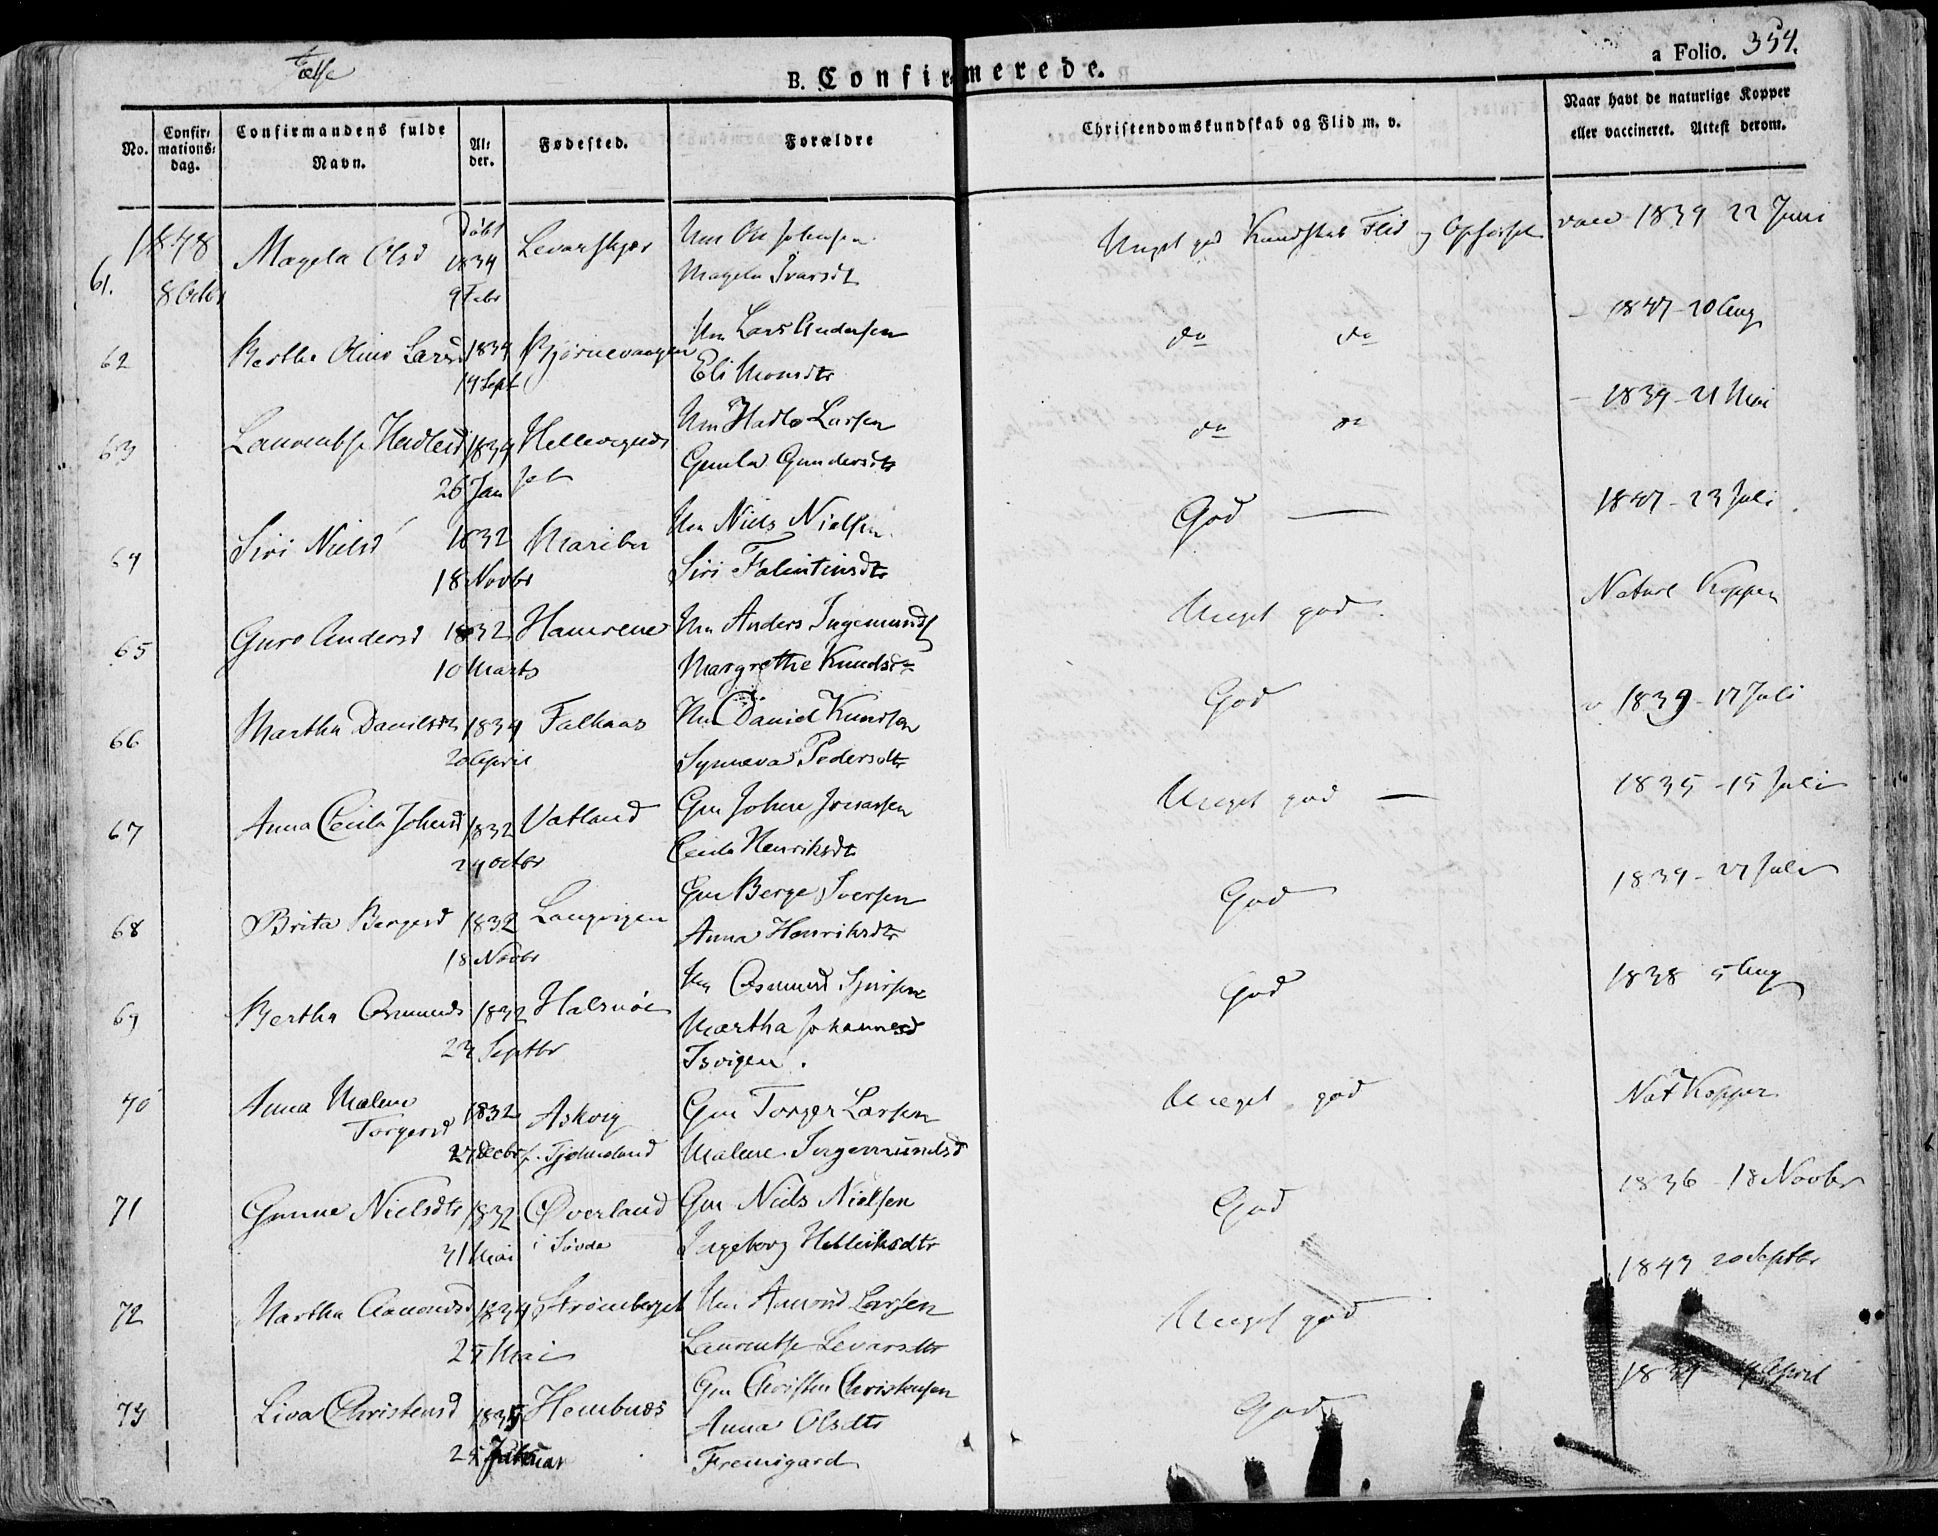 B. Confirmerede.
a Folio. 354.
No.
Confir-
mations-
dag.
Confirmandens fulde
Navn.
Al-
der.
Fødested.
Forældre
Christendomskundskab og Flid m. v.
Naar havt de naturlige Kopper
eller vaccineret. Attest derom.
1848
61. 8 Octbr Magela Olsd Døbt 1834 9 Febr Levarskjær Um Ole Johnsen Magela Ivarsdt Meget god Kundskab Flid og Opførsel vacc 1839 22 Juni
62 Berthe Oline Larsd 1834 14 Sept Bjørnevaagen Um Lars Andersen Eli Monsdtr do do 1847 - 20 Aug
63 Laurentse Hadlesd 1834 26 Jan Um Hadle Larsen Gunla Gundersdtr do do 1839 - 21 Mai
64 Siri Nielsd 1832 18 Novbr Um Niels Nielsen Siri Falentinsdtr God 1847 - 23 Juli
65 Guro Andersd 1832 10 Marts Hamrene Um Anders Ingemunds Margrethe Knudsdr Meget god Naturl Kopper
66 Martha Danielsdtr 1834 20 April Falkaas Um Daniel Knudsen Synneva Pedersdtr God v 1839 - 17 Juli
67 Anna Cecile Johnsd 1832 24 Octbr Vatland Gm Johne Cecile Henriksdtr Meget god 1835 - 15 Juli
68 Brita Bergesd 1832 18 Novbr Langvigen Gm Berge Iversen Anna Henriksdtr God 1839 - 27 Juli
69 Bertha Osmunds 1832 23 Septbr Halsnøe Um Osmund Sjursen Martha Johannesd Isvigen. God 1838 5 Aug
70 Anna Malene Torgersd 1832 27 Decbr Askvig f. Tjølmeland Gm Torger Larsen Malene Ingemundsd Meget god Nat Kopper
71 Gunne Nielsdtr 1832 31 Mai Øverland i Søvde Gm Niels Nielsen Ingeborg Helleiksdtr God 1836 - 18 Novbr
72 Martha Amonds 1834 25 Mai Strømberget Um Amond Larsen Laurentse Levarsdtr Meget god 1843 20 Septbr
73 Liva Christensd 1835 25 Januar Hembnes Gm Christen Christensen Anna Olsdtr Fremigard God April